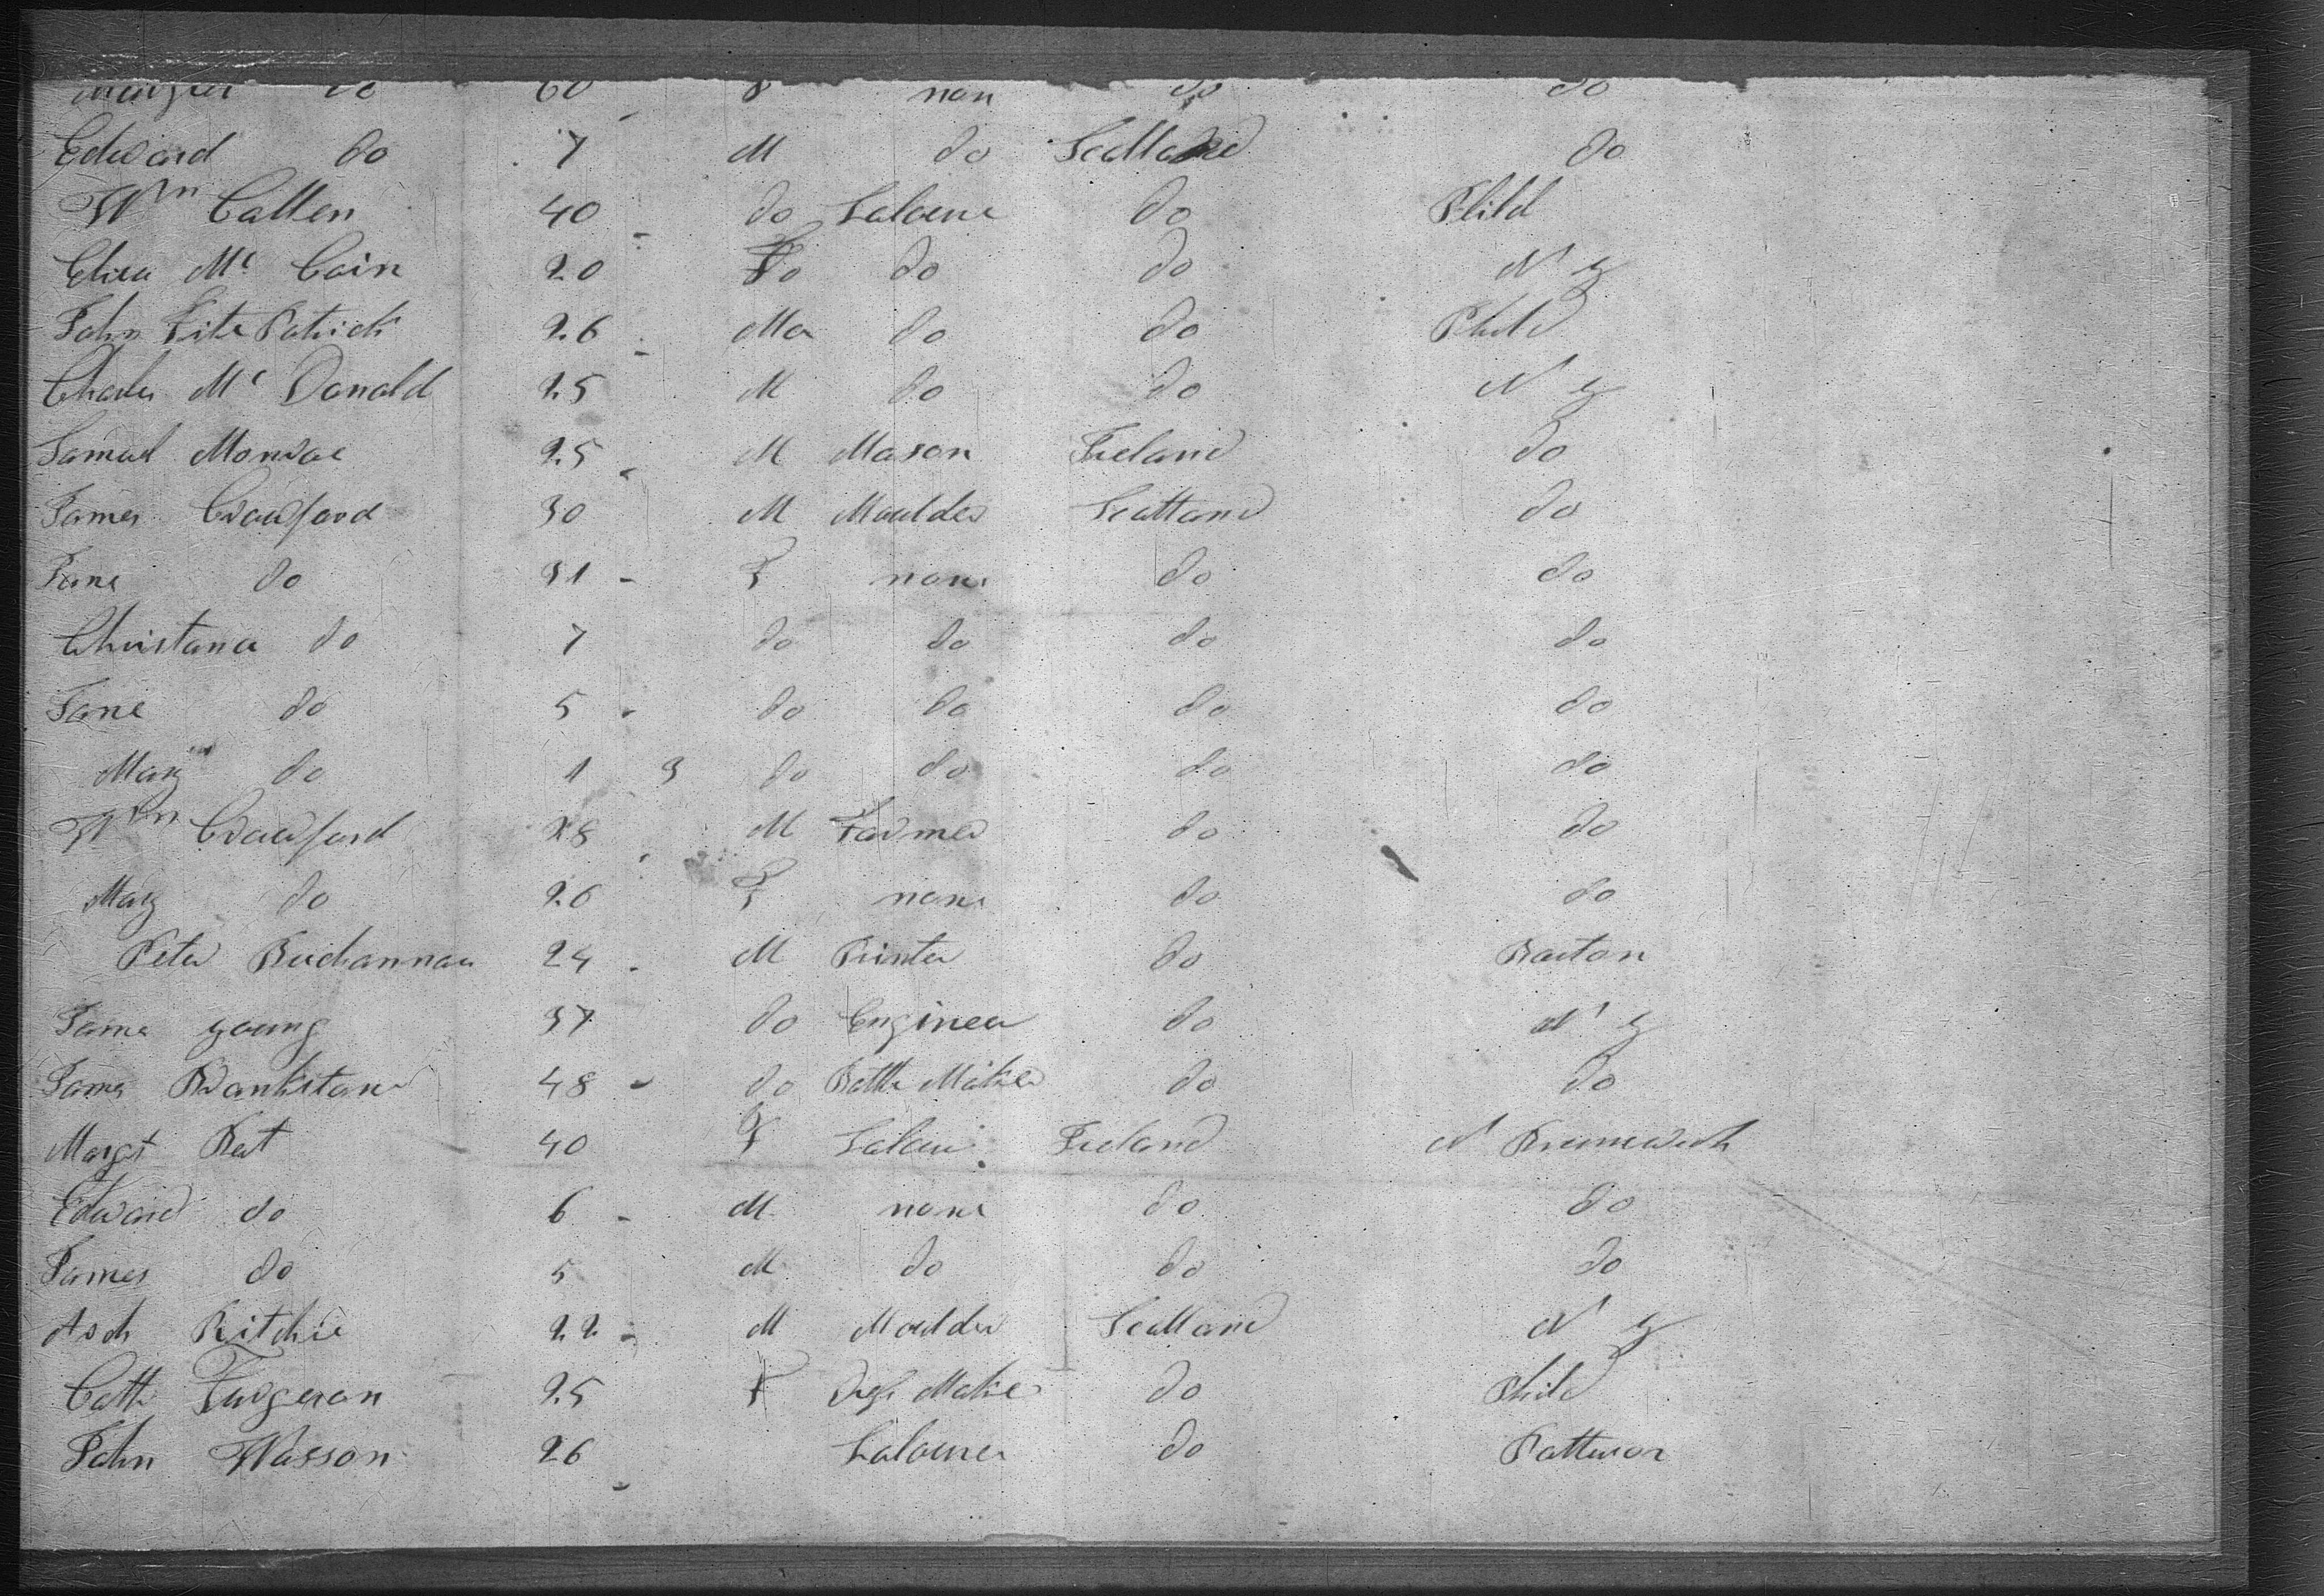 do 60 F non do do
Edward do 7 M do Scotland do
Wm Callen 40 do Laborer do Phild
Eliza Mc Cain 20 Fo do do N Y
John Fitz Patrick 26 Ma do do Phild
Charles Mc Donald 25 M do do N Y
Samuel Monroe 25 M Mason Ireland do
James Crawford 30 M Moulder Scotland do
Jane do 31 F none do do
Christana do 7 do do do do
Jane do 5 do do do do
Mary do 1 9 do do do do
Wm Crawford 28 M Farmer do do
Mary do 26 F none do do
Peter Buchannan 24 M Printer do Boston
Jame Young 37 do Enginear do N Y
James Bankstane 48 do Bottle Maker do do
Margt 40 F Ireland N Brunswick
Edward do 6 M none do do
James do 5 M do do do
Arch Ritchie 22 M Moulder Scotland N Y
Cath Furgeson 25 F Maker do Phild
John Wasson 26 Labourer do Patterson